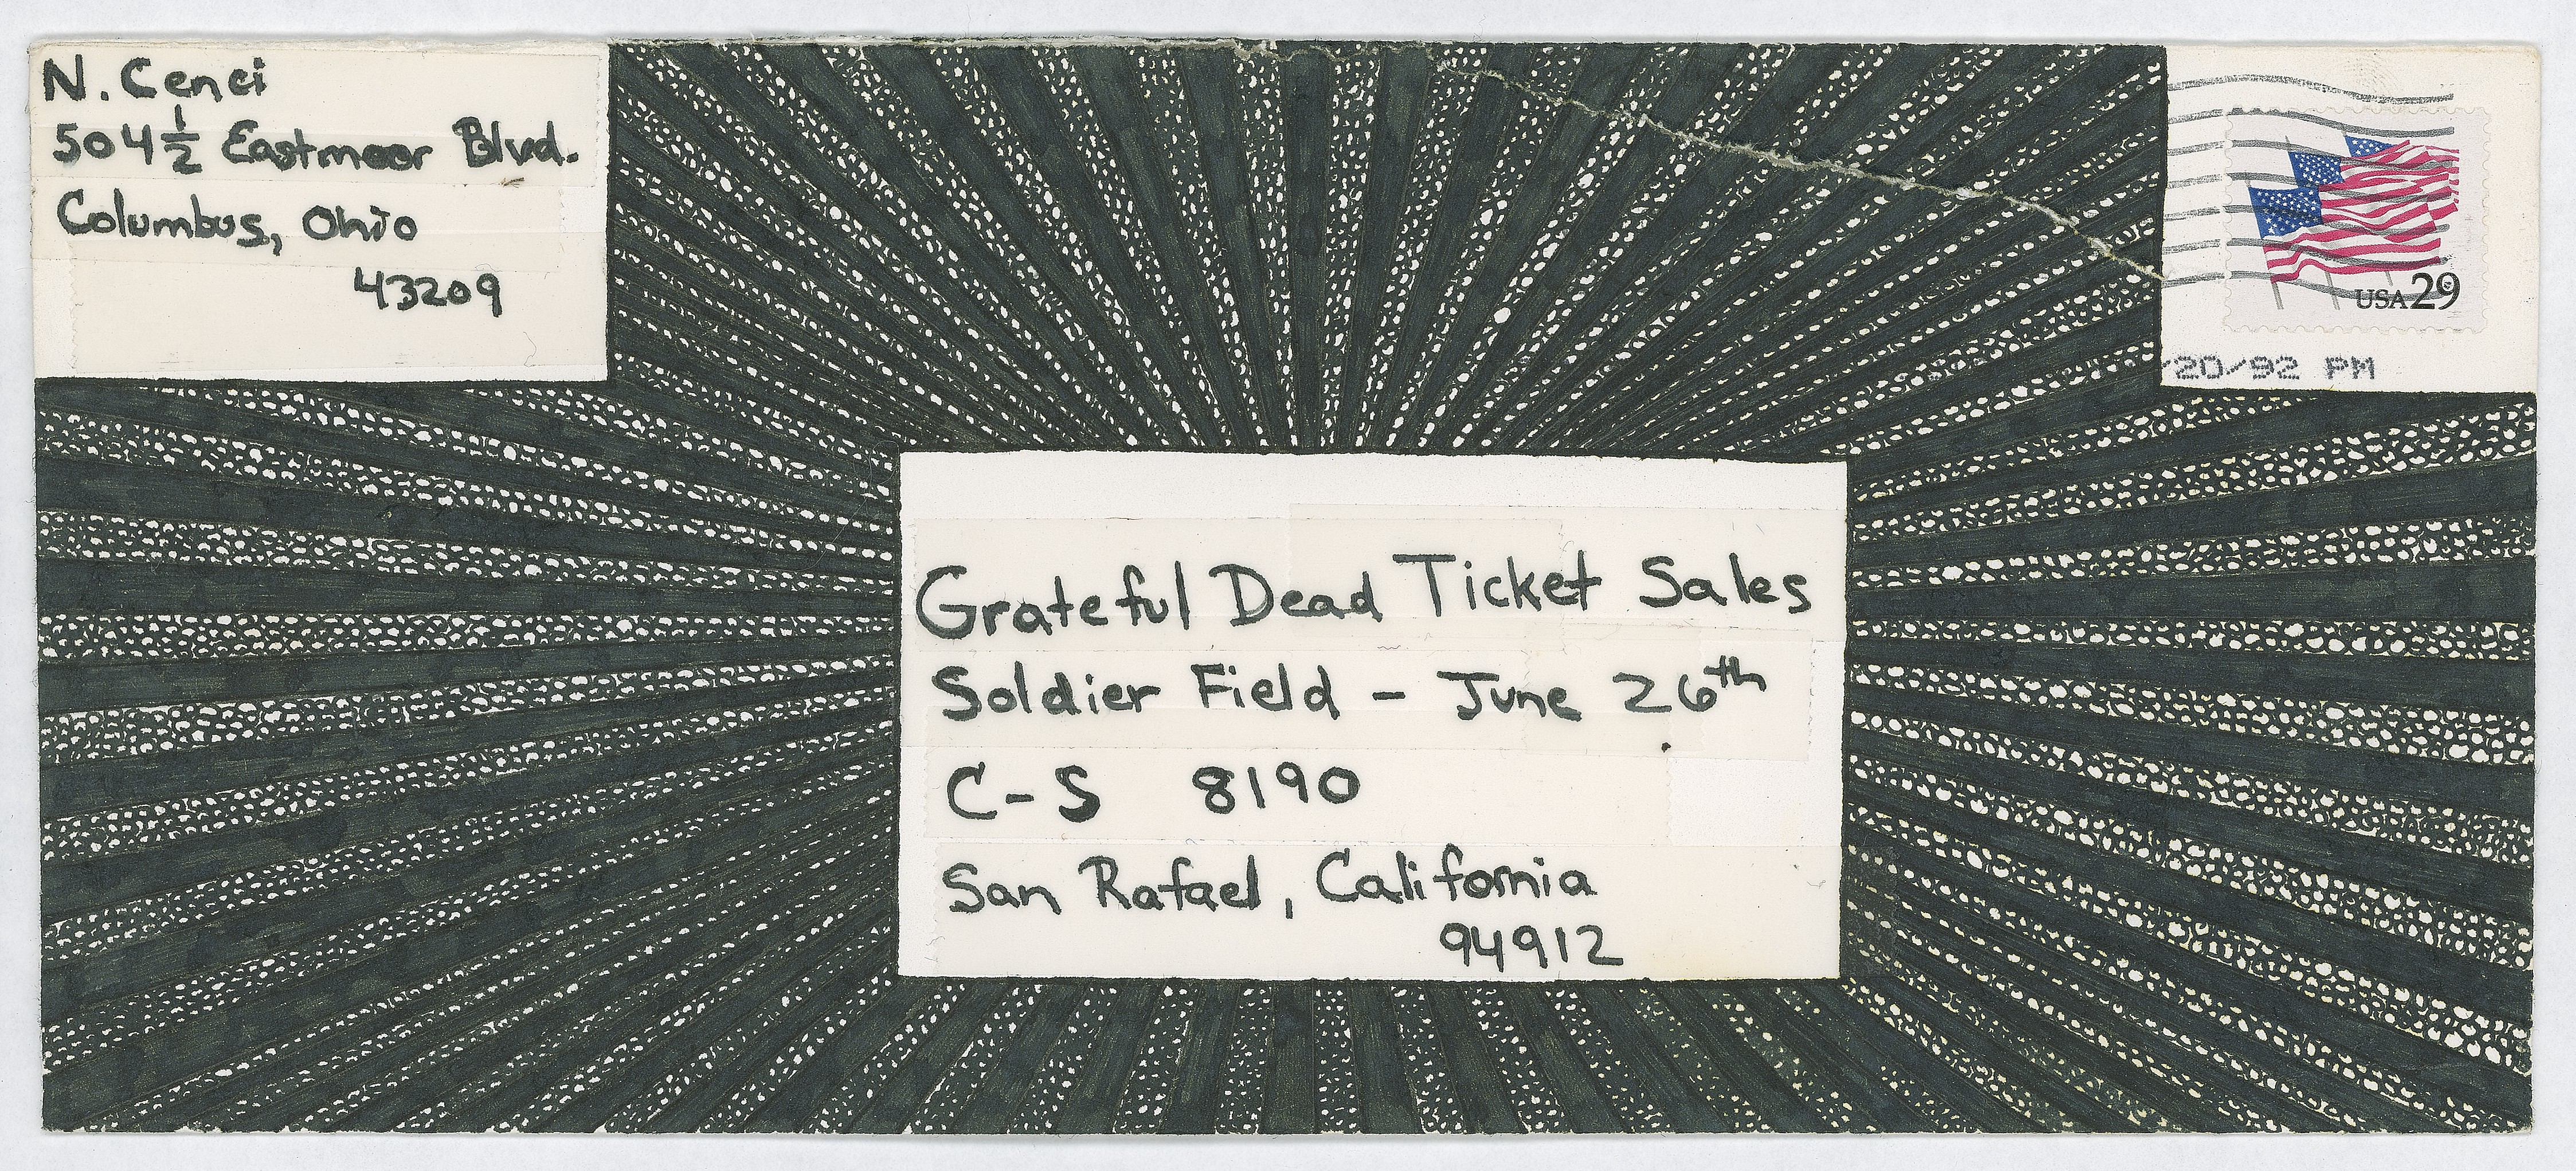 N. Cenci
504 1/2 Eastmoor Blvd.
Columbus, Ohio
43209
USA 29
/20/92 PM
Grateful Dead Ticket Sales
Soldier Field - June 26th
C-S 8190
San Rafael, California
94912